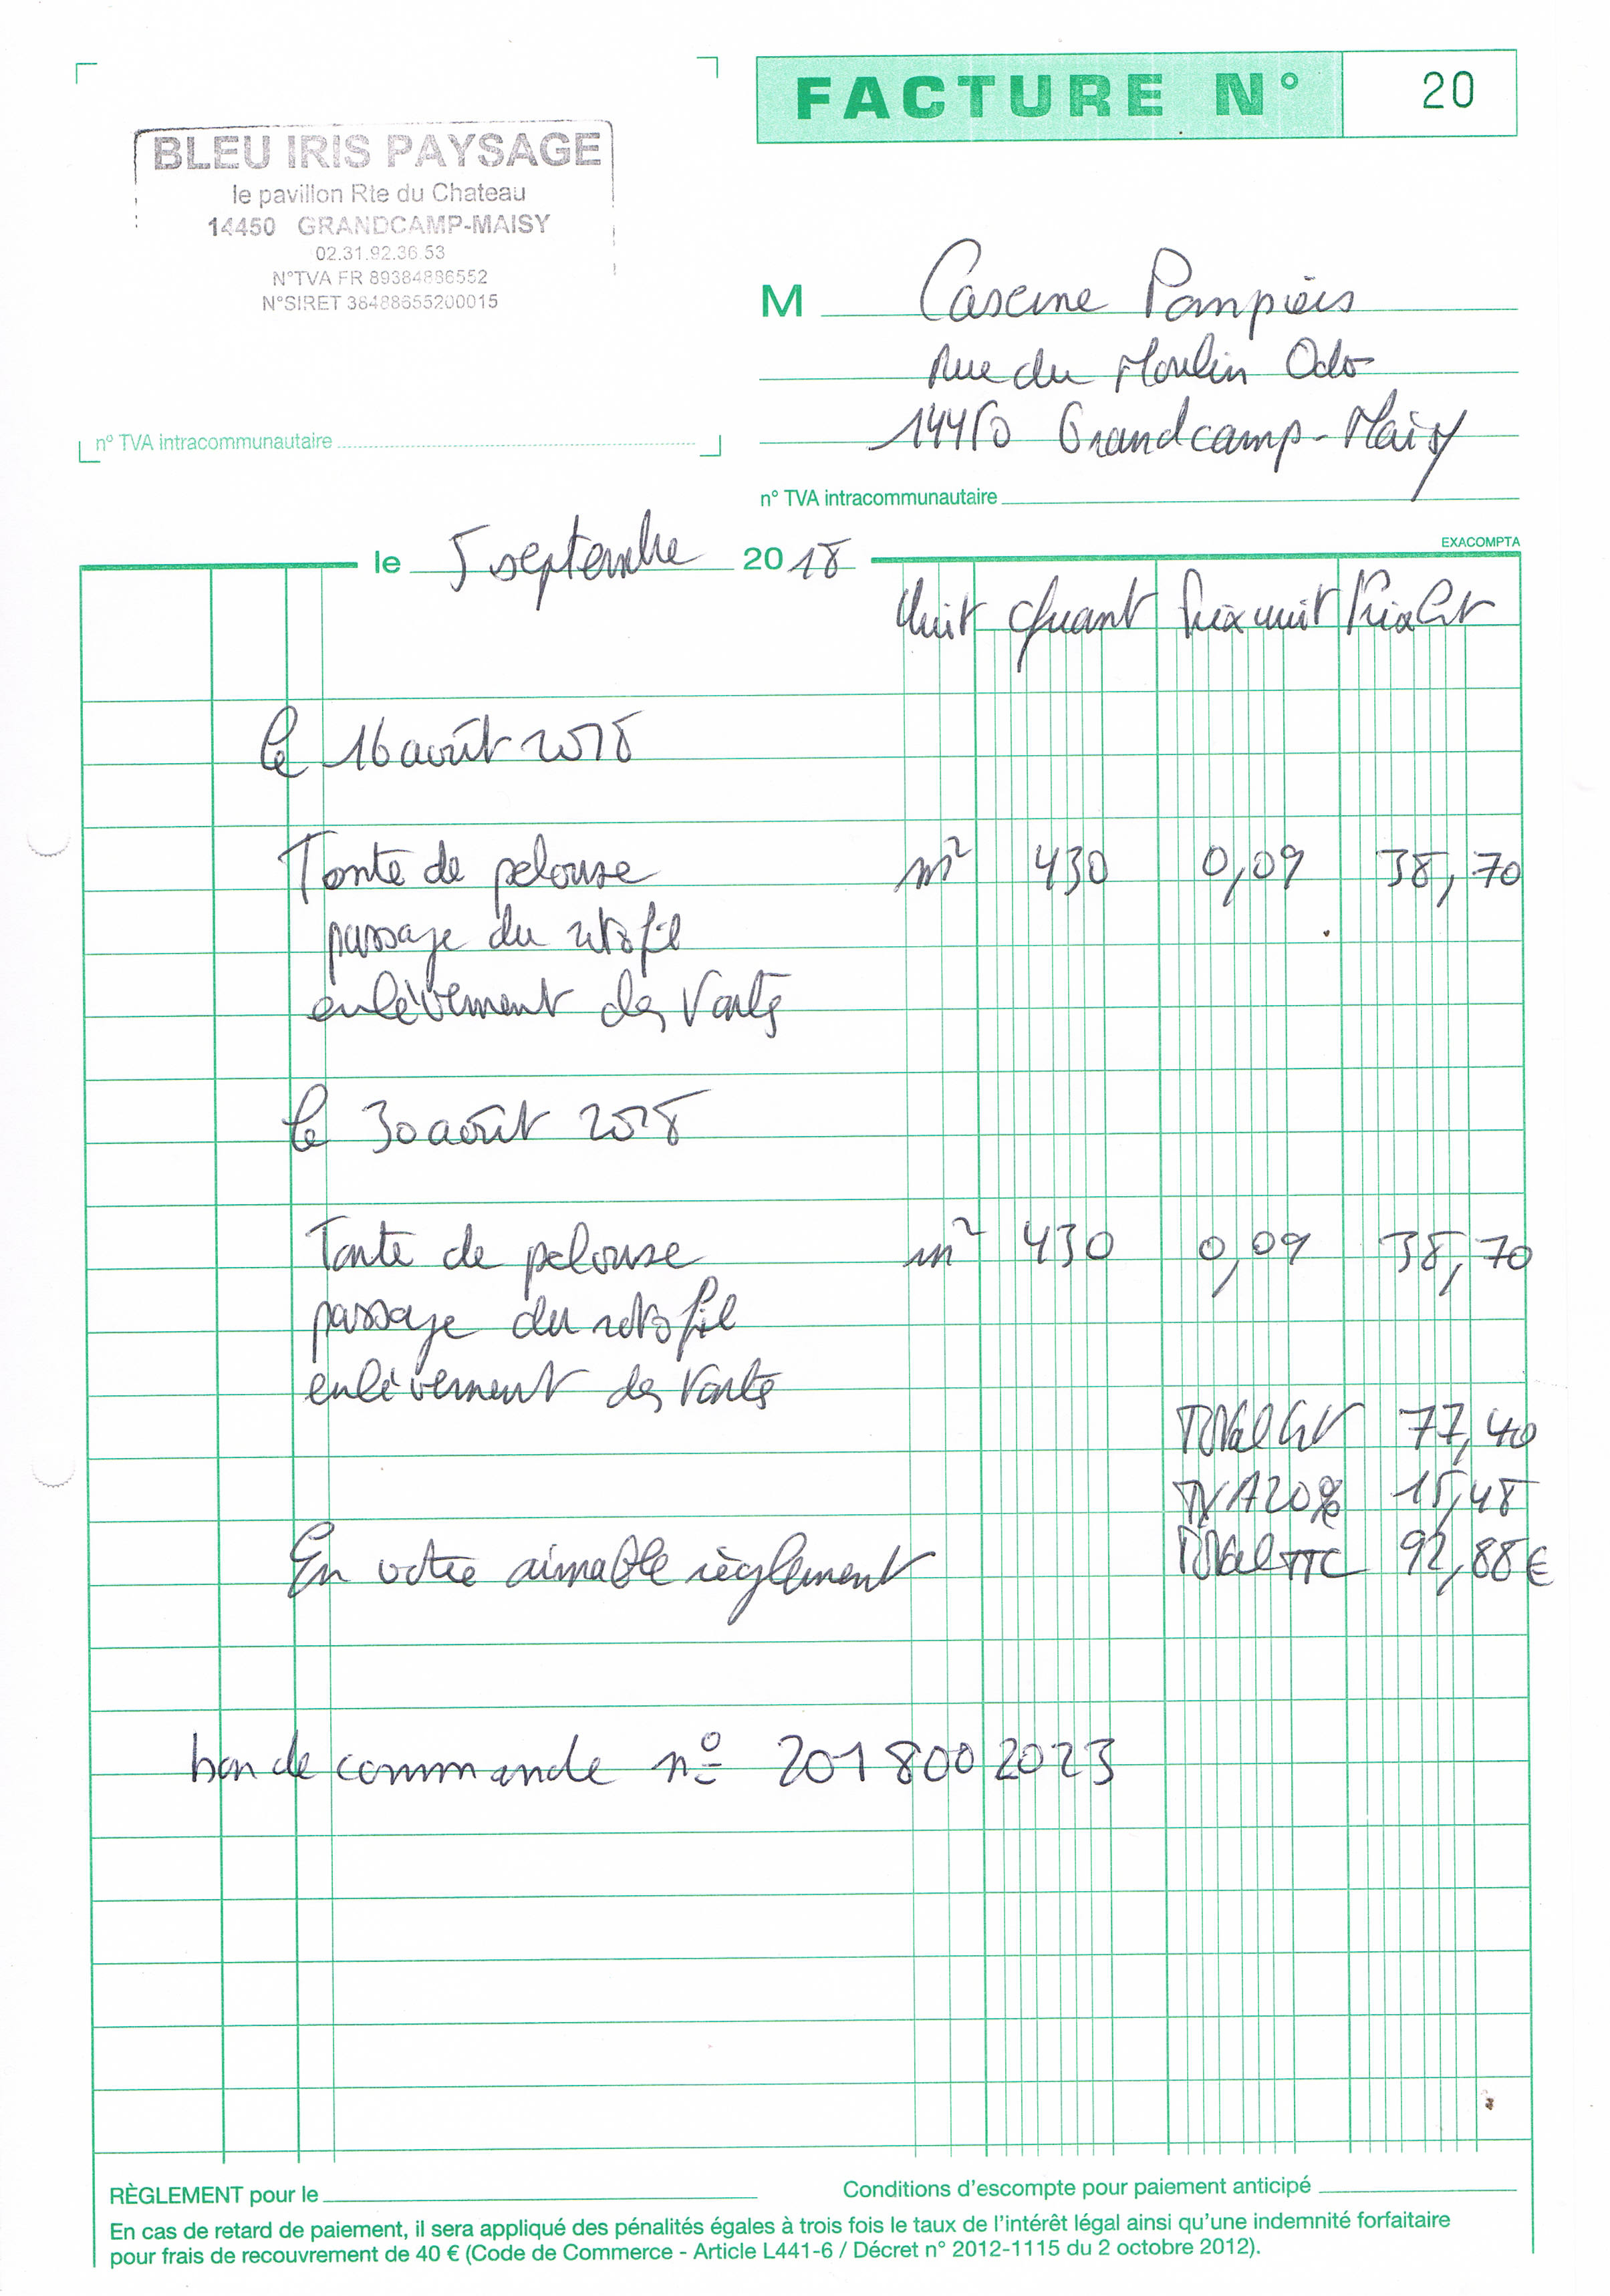 FACTURE N° 20
BLEU IRIS PAYSAGE
le pavillon Rte du Chateau
14450 GRANDCAMP-MAISY
02.31.92.36.53
N°TVA FR 89384886552
N°SIRET 38488655200015
n° TVA intracommunautaire
M Caserne Pompiers
Rue du Moulin Odo
14450 Grandcamp-Maisy
n° TVA intracommunautaire
EXACOMPTA
le 5 septembre 2018
Unit Quant Prix unit Prix HT
le 16 août 2018
Tonte de pelouse m² 430 0,09 38,70
passage du rotofil
enlèvement des Verts
le 30 août 2018
Tonte de pelouse m² 430 0,09 38,70
passage du rotofil
enlèvement des Verts
Total HT 77,40
TVA 20% 15,48
Total TTC 92,88€
En votre aimable règlement
bon de commande n° 2018002023
RÈGLEMENT pour le
Conditions d'escompte pour paiement anticipé
En cas de retard de paiement, il sera appliqué des pénalités égales à trois fois le taux de l'intérêt légal ainsi qu'une indemnité forfaitaire
pour frais de recouvrement de 40 € (Code de Commerce - Article L441-6 / Décret n° 2012-1115 du 2 octobre 2012).